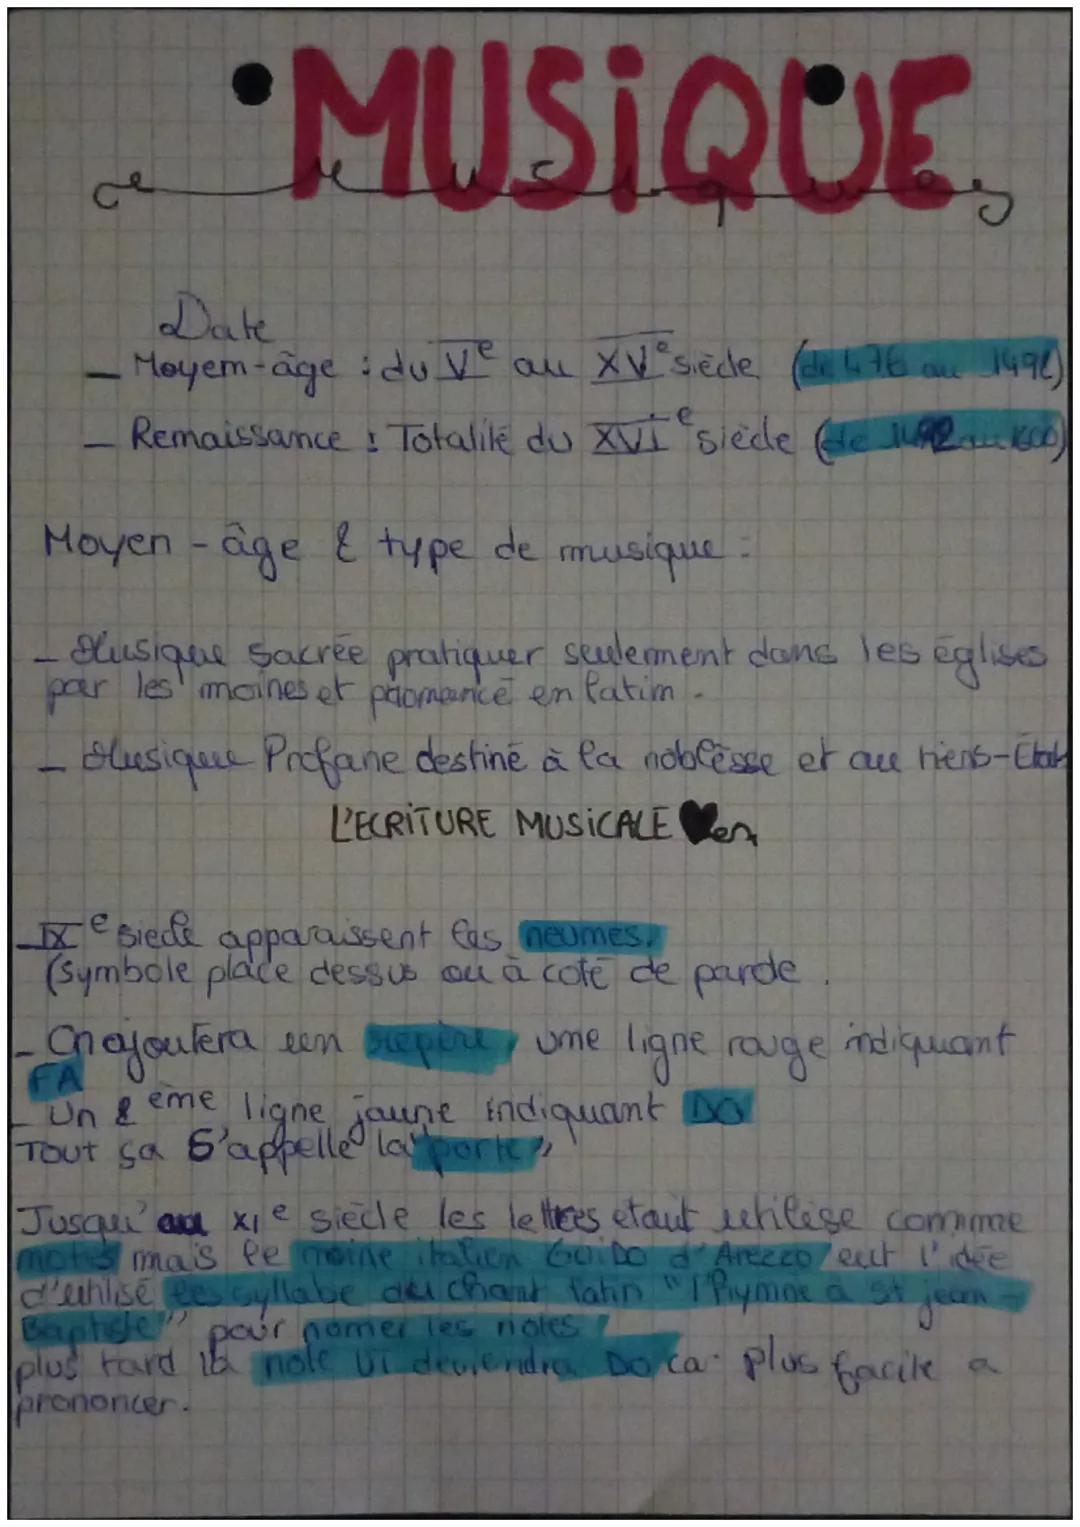 MUSiQUE
musique
Date
- Moyem-âge : du Ve au XVe siècle (de 476 au 1492)
- Remaissance : Totalité du XVIe siècle (de 1492 au 1600)
Moyen-âge & type de musique :
- Musique sacrée pratiquer seulement dans les églises
par les moines et prononcé en latim.
- Musique Profane destiné à la noblesse et au tiers-Etat
L'ECRiTURE MUSiCALE
- IXe siecle apparaissent les neumes.
(symbole place dessus ou à coté de parole.
- On ajoutera un repère, ume ligne rouge indiquant
FA
- Un 2eme ligne jaune indiquant DO
Tout sa s'appelle la "porte"
Jusqu'au XIe siècle les lettres etaut utilise comme
notes mais le moine italien GuiDo d'Arezzo eut l'idée
d'utilisé les syllabe du chant latin "l'Hymne a st jean-
Baptiste" pour nomer les notes,
plus tard la note UT deviendra DO ca plus facile a
prononcer.